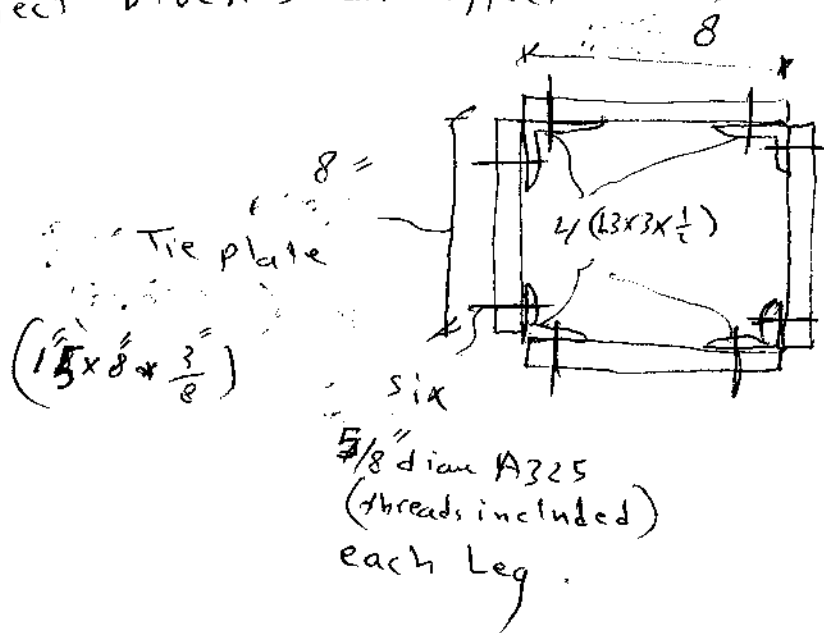 8
8"
Tie plate
4(L3x3x1/2)
(15"x8"x3/8")
six
5/8" diam A325
(threads included)
each Leg.